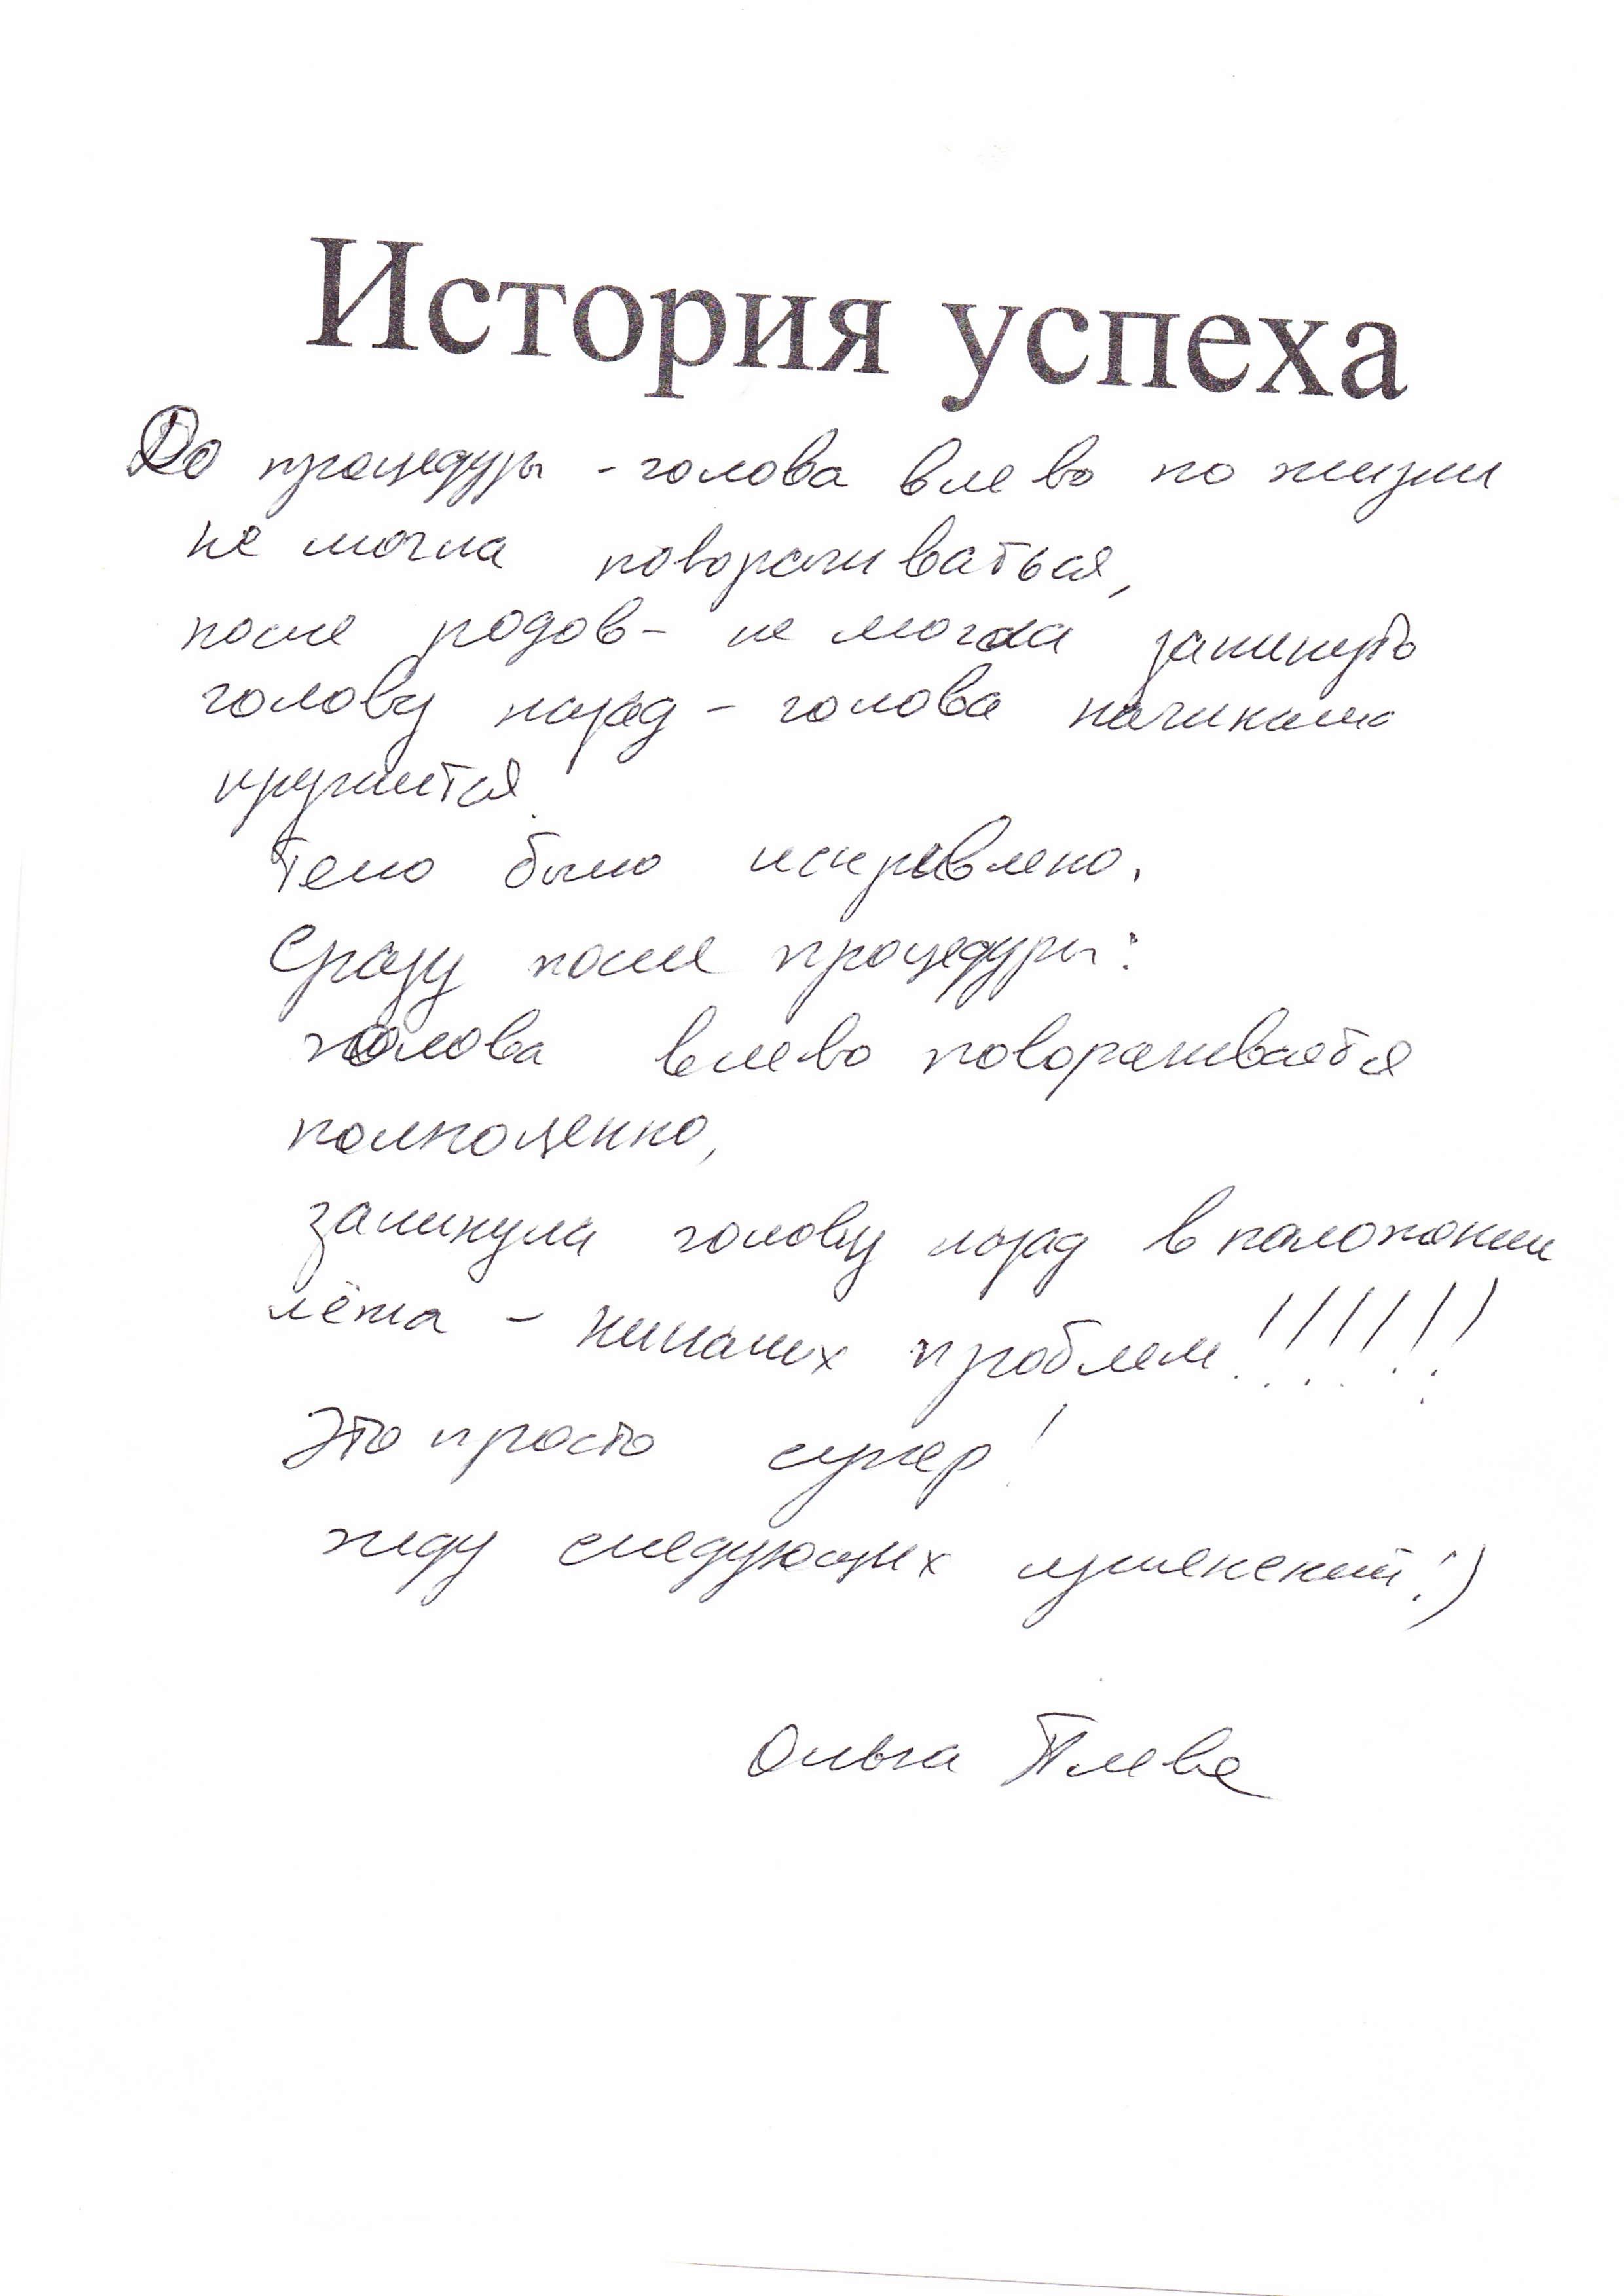 История успеха
До процедуры - голова влево по жизни
не могла поворачиваться,
после родов - не могла закинуть
голову назад - голова начинала
кружится.
Тело было искривлено.
Сразу после процедуры:
голова влево поворачивается
полноценно,
закинула голову назад в положении
лёжа - никаких проблем!!!!!!
Это просто супер!
жду следующих изменений!)
Ольга Плеве